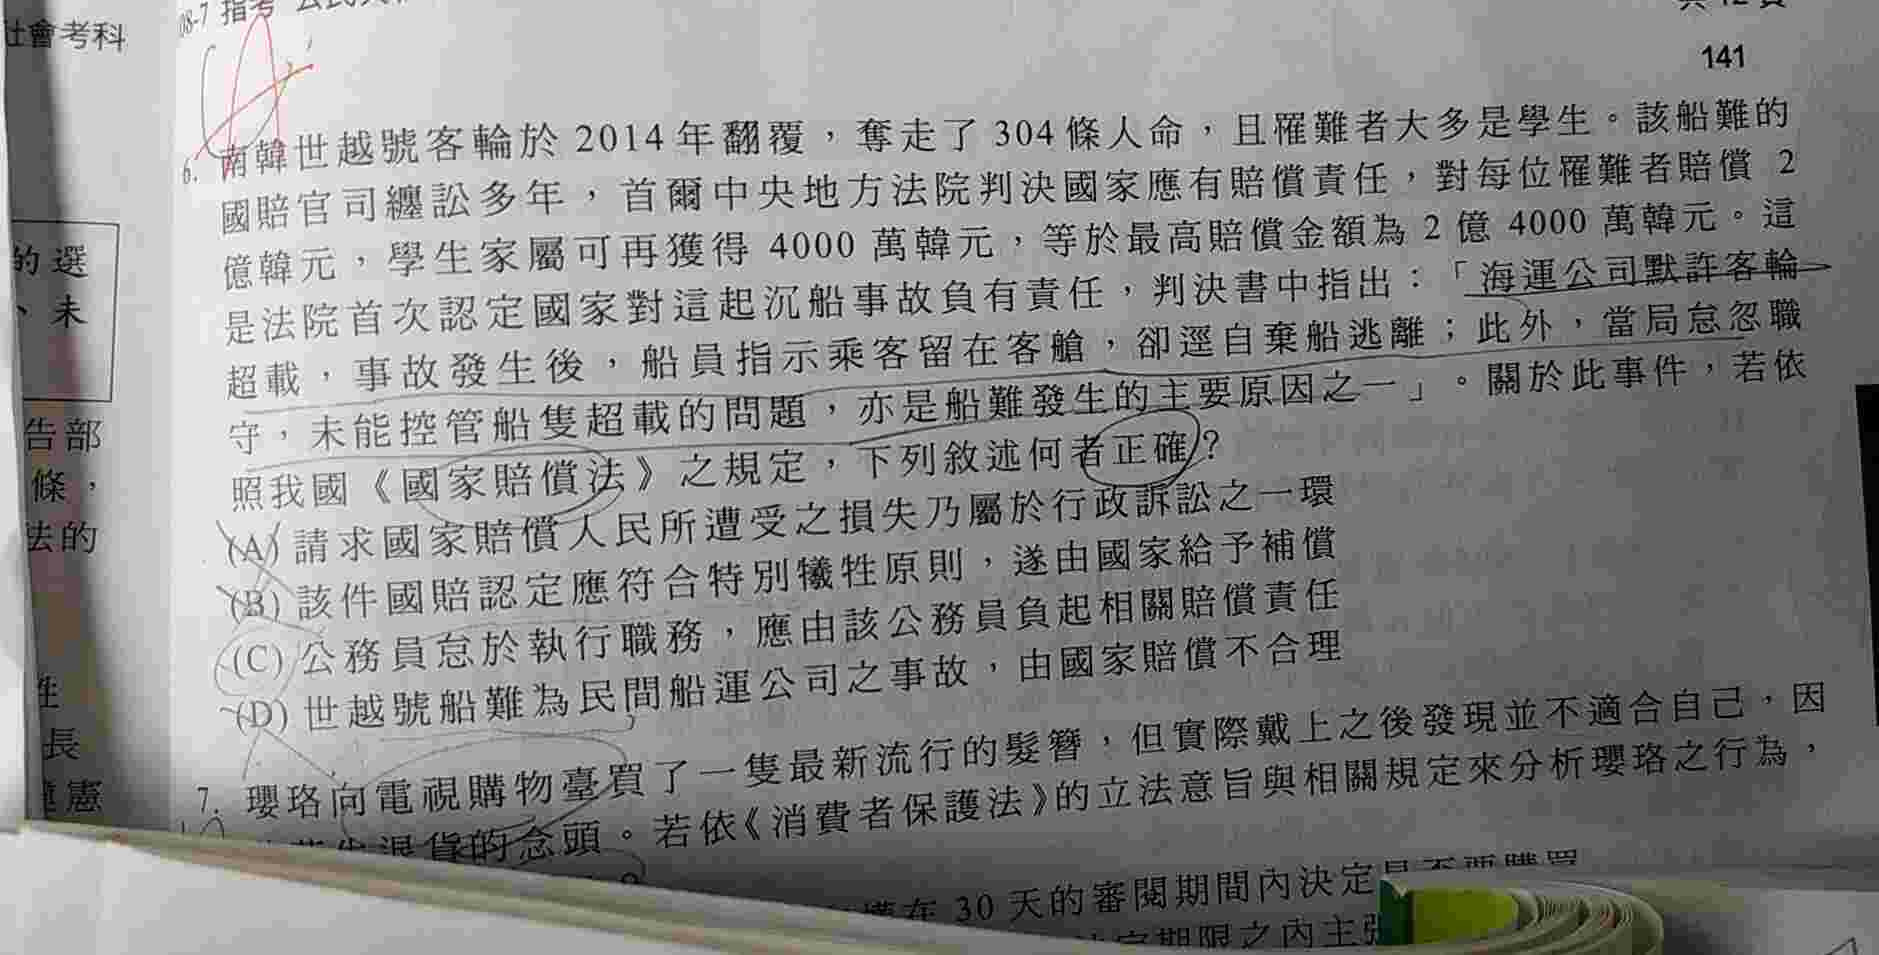 社會考科
08-7 指考
141
6. 南韓世越號客輪於 2014 年翻覆，奪走了 304 條人命，且罹難者大多是學生。該船難的
國賠官司纏訟多年，首爾中央地方法院判決國家應有賠償責任，對每位罹難者賠償 2
億韓元，學生家屬可再獲得 4000 萬韓元，等於最高賠償金額為 2 億 4000 萬韓元。這
是法院首次認定國家對這起沉船事故負有責任，判決書中指出：「海運公司默許客輪
超載，事故發生後，船員指示乘客留在客艙，卻逕自棄船逃離；此外，當局怠忽職
守，未能控管船隻超載的問題，亦是船難發生的主要原因之一」。關於此事件，若依
照我國《國家賠償法》之規定，下列敘述何者正確？
(A) 請求國家賠償人民所遭受之損失乃屬於行政訴訟之一環
(B) 該件國賠認定應符合特別犧牲原則，遂由國家給予補償
(C) 公務員怠於執行職務，應由該公務員負起相關賠償責任
(D) 世越號船難為民間船運公司之事故，由國家賠償不合理
7. 瓔珞向電視購物臺買了一隻最新流行的髮簪，但實際戴上之後發現並不適合自己，因
退貨的念頭。若依《消費者保護法》的立法意旨與相關規定來分析瓔珞之行為，
在 30 天的審閱期間內決定是否要購買
期限之內主張
的選
、未
告部
條，
法的
長
憲